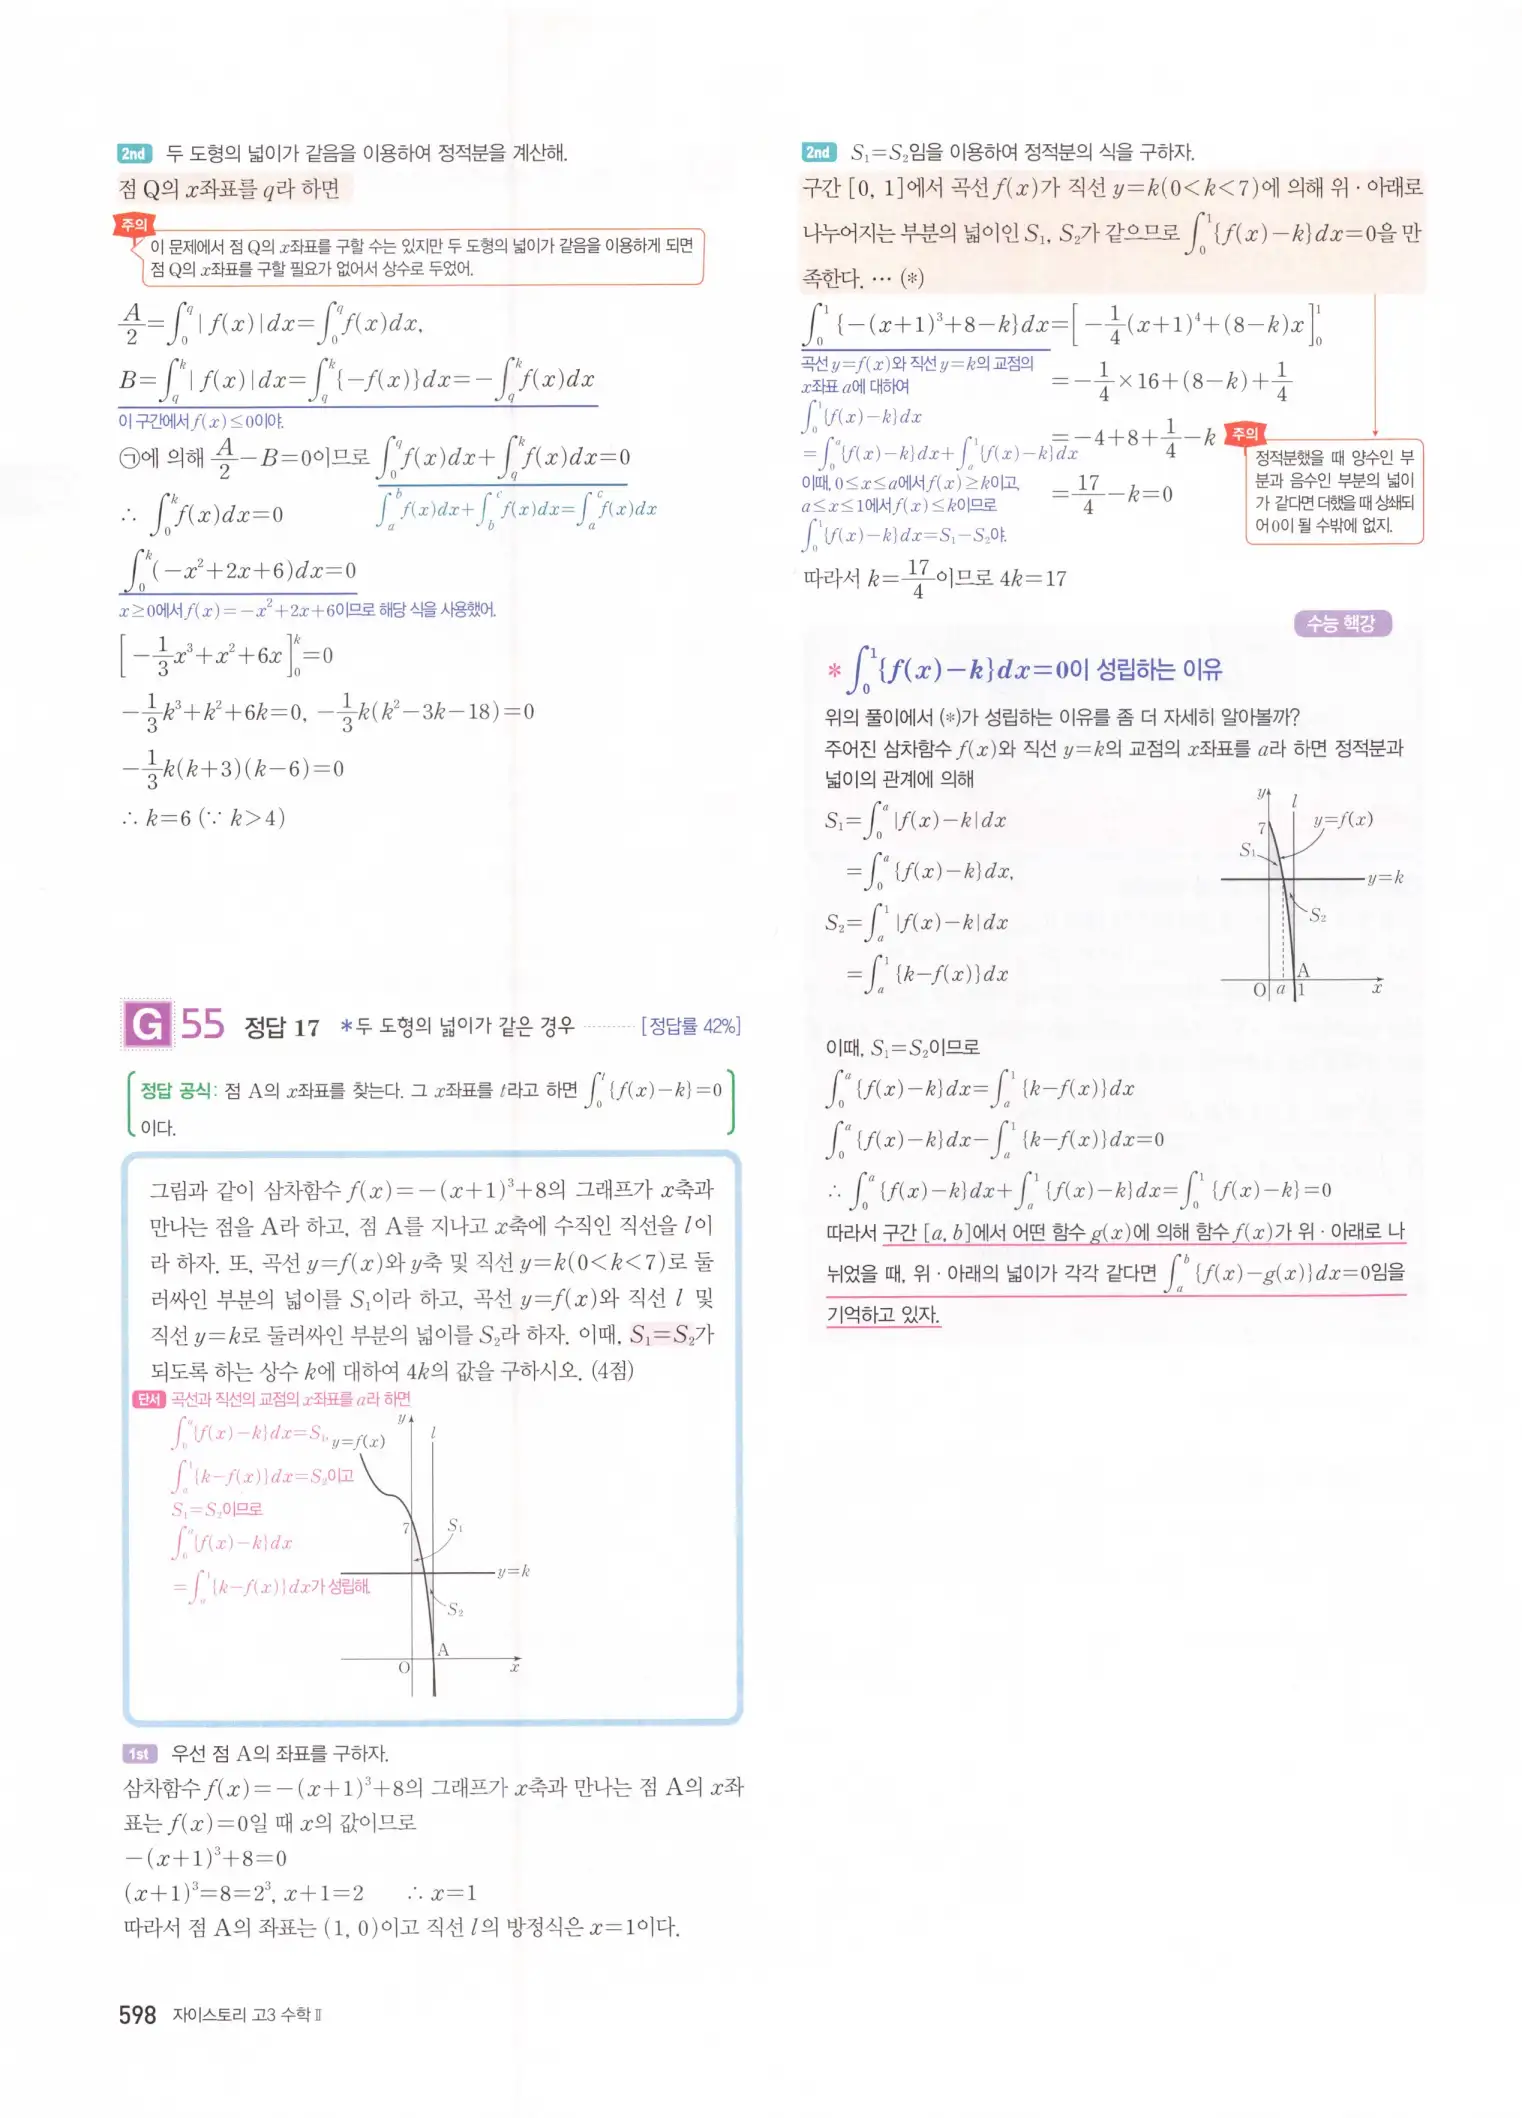 2nd 두 도형의 넓이가 같음을 이용하여 정적분을 계산해.
점 Q의 x좌표를 q라 하면
주의
이 문제에서 점 Q의 x좌표를 구할 수는 있지만 두 도형의 넓이가 같음을 이용하게 되면
점 Q의 x좌표를 구할 필요가 없어서 상수로 두었어.
A/2=∫₀^q |f(x)|dx=∫₀^q f(x)dx,
B=∫_q^k |f(x)|dx=∫_q^k {-f(x)}dx=-∫_q^k f(x)dx
이 구간에서 f(x)≤0이야.
㉠에 의해 A/2-B=0이므로 ∫₀^q f(x)dx+∫_q^k f(x)dx=0
∫_a^b f(x)dx+∫_b^c f(x)dx=∫_a^c f(x)dx
∴ ∫₀^k f(x)dx=0
∫₀^k (-x²+2x+6)dx=0
x≥0에서 f(x)=-x²+2x+6이므로 해당 식을 사용했어.
[-1/3x³+x²+6x]₀^k=0
-1/3k³+k²+6k=0, -1/3k(k²-3k-18)=0
-1/3k(k+3)(k-6)=0
∴ k=6 (∵ k>4)
G 55 정답 17 *두 도형의 넓이가 같은 경우 ········· [정답률 42%]
정답 공식: 점 A의 x좌표를 찾는다. 그 x좌표를 t라고 하면 ∫₀^t {f(x)-k}=0
이다.
그림과 같이 삼차함수 f(x)=-(x+1)³+8의 그래프가 x축과
만나는 점을 A라 하고, 점 A를 지나고 x축에 수직인 직선을 l이
라 하자. 또, 곡선 y=f(x)와 y축 및 직선 y=k(0<k<7)로 둘
러싸인 부분의 넓이를 S₁이라 하고, 곡선 y=f(x)와 직선 l 및
직선 y=k로 둘러싸인 부분의 넓이를 S₂라 하자. 이때, S₁=S₂가
되도록 하는 상수 k에 대하여 4k의 값을 구하시오. (4점)
단서 곡선과 직선의 교점의 x좌표를 a라 하면
∫₀^a {f(x)-k}dx=S₁,
∫_a^1 {k-f(x)}dx=S₂이고
S₁=S₂이므로
∫₀^a {f(x)-k}dx
=∫_a^1 {k-f(x)}dx가 성립해.
y
l
y=f(x)
7
S₁
y=k
S₂
A
O
x
1st 우선 점 A의 좌표를 구하자.
삼차함수 f(x)=-(x+1)³+8의 그래프가 x축과 만나는 점 A의 x좌
표는 f(x)=0일 때 x의 값이므로
-(x+1)³+8=0
(x+1)³=8=2³, x+1=2 ∴ x=1
따라서 점 A의 좌표는 (1, 0)이고 직선 l의 방정식은 x=1이다.
598 자이스토리 고3 수학Ⅱ
2nd S₁=S₂임을 이용하여 정적분의 식을 구하자.
구간 [0, 1]에서 곡선 f(x)가 직선 y=k(0<k<7)에 의해 위·아래로
나누어지는 부분의 넓이인 S₁, S₂가 같으므로 ∫₀^1 {f(x)-k}dx=0을 만
족한다. ⋯ (*)
∫₀^1 {-(x+1)³+8-k}dx=[-1/4(x+1)⁴+(8-k)x]₀^1
=-1/4×16+(8-k)+1/4
=-4+8+1/4-k
=17/4-k=0
곡선 y=f(x)와 직선 y=k의 교점의
x좌표 a에 대하여
∫₀^1 {f(x)-k}dx
=∫₀^a {f(x)-k}dx+∫_a^1 {f(x)-k}dx
이때, 0≤x≤a에서 f(x)≥k이고,
a≤x≤1에서 f(x)≤k이므로
∫₀^1 {f(x)-k}dx=S₁-S₂야.
주의
정적분했을 때 양수인 부
분과 음수인 부분의 넓이
가 같다면 더했을 때 상쇄되
어 0이 될 수밖에 없지.
따라서 k=17/4이므로 4k=17
수능 핵강
* ∫₀^1 {f(x)-k}dx=0이 성립하는 이유
위의 풀이에서 (*)가 성립하는 이유를 좀 더 자세히 알아볼까?
주어진 삼차함수 f(x)와 직선 y=k의 교점의 x좌표를 a라 하면 정적분과
넓이의 관계에 의해
S₁=∫₀^a |f(x)-k|dx
=∫₀^a {f(x)-k}dx,
S₂=∫_a^1 |f(x)-k|dx
=∫_a^1 {k-f(x)}dx
y
l
7
y=f(x)
S₁
y=k
S₂
A
O
a
1
x
이때, S₁=S₂이므로
∫₀^a {f(x)-k}dx=∫_a^1 {k-f(x)}dx
∫₀^a {f(x)-k}dx-∫_a^1 {k-f(x)}dx=0
∴ ∫₀^a {f(x)-k}dx+∫_a^1 {f(x)-k}dx=∫₀^1 {f(x)-k}=0
따라서 구간 [a, b]에서 어떤 함수 g(x)에 의해 함수 f(x)가 위·아래로 나
뉘었을 때, 위·아래의 넓이가 각각 같다면 ∫_a^b {f(x)-g(x)}dx=0임을
기억하고 있자.